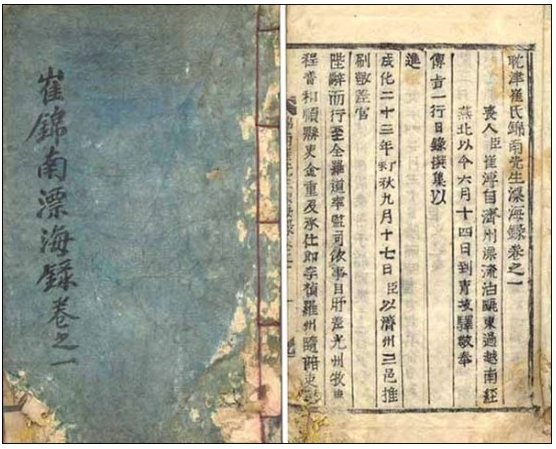 崔錦南漂海録卷之一
耽津崔氏錦南先生漂海錄卷之一
喪人臣崔溥自濟州漂流泊甌東過越南經
燕北以今六月十四日到青坡驛敬奉
傳旨一行日錄撰集以
進
成化二十三年丁未秋九月十七日臣以濟州三邑推
刷敬差官
陛辭而行至全羅道率監司依事目所差光州牧吏
程普和順縣吏金重及承仕郎李楨羅州隨陪吏